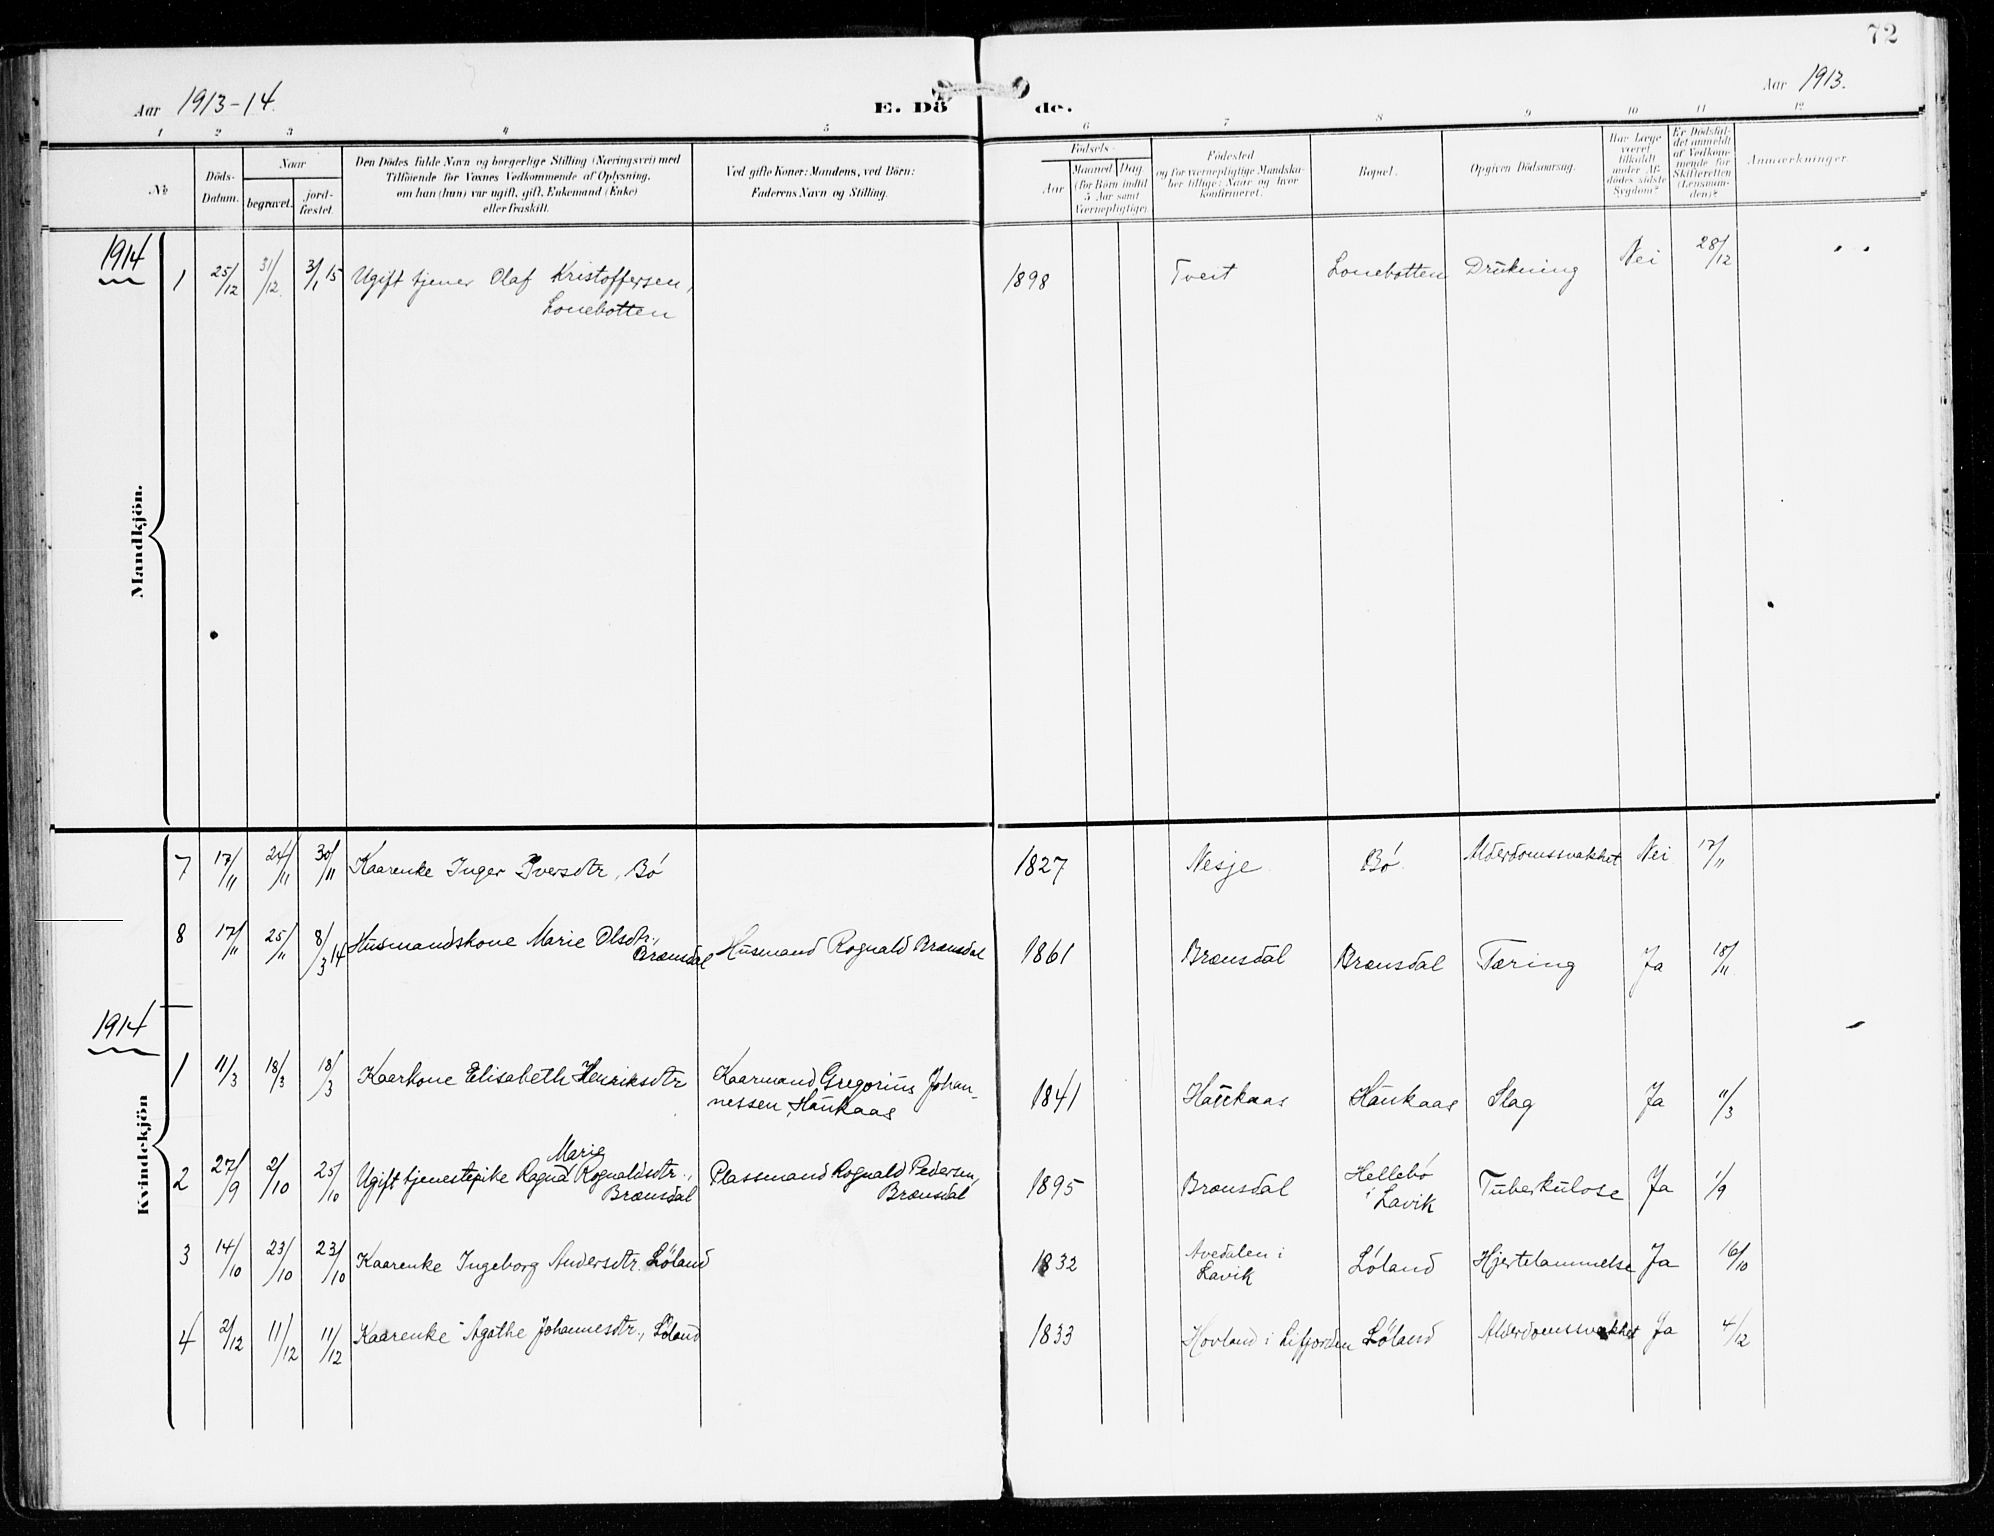 72
Aar 1913-14. E. Dö de. Aar 1913.
1 2 3 4 5 6 7 8 9 10 11 12
No
Döds-
Datum.
Naar
begravet.
jord-
fæstet.
Den Dödes fulde Navn og borgerlige Stilling (Næringsvei) med
Tilföiende for Voxnes Vedkommende af Oplysning,
om han (hun) var ugift, gift, Enkemand (Enke)
eller fraskilt.
Ved gifte Koner: Mandens, ved Börn:
Faderens Navn og Stilling.
Födsels-
Aar
Maaned Dag
(for Börn indtil
5 Aar samt
Værnepligtige).
Födested
og for værnepligtige Mandska-
ber tillige: Naar og hvor
konfirmeret.
Bopæl.
Opgiven Dödsaarsag.
Har Læge
været
tilkaldt
under Af-
dödes sidste
Sygdom?
Er Dödsfal-
det anmeldt
af Vedkom-
mende for
Skifteretten
(Lensman-
den)?
Anmærkninger.
Mandkjön.
1914
1 25/12 31/12 3/1 15 Ugift tjener Olaf Kristoffersen, 1898 Tveit Lonebotten Drukning Nei 28/12
Lonebotten
Kvindekjön
7 17/11 24/11 30/11 Kaarenke Inger Iversdtr, Bø 1827 Nesje Bø Alderdomssvakhet Nei 17/11
8 17/11 25/11 8/3 14 Husmandskone Marie Olsdtr., Husmand Rognald Brænsdal 1861 Brænsdal Brænsdal Tæring Ja 18/11
Brænsdal
1914
1 11/3 18/3 18/3 Kaarkone Elisabeth Henriksdtr Kaarmand Gregorius Johan- 1841 Haukaas Haukaas Slag Ja 11/3
nessen, Haukaas
Marie
2 27/9 2/10 25/10 Ugift tjenestepike Ragna Rognaldsdtr., Plassmand Rognald Pedersen, 1895 Brænsdal Hellebø Tuberkulose Ja 1/9
Brænsdal Brænsdal i Lavik
3 14/10 23/10 23/10 Kaarenke Ingeborg Andersdtr. Løland 1832 Avedalen i Løland Hjertelammelse Ja 16/10
Lavik
4 2/12 11/12 11/12 Kaarenke Agathe Johannesdtr., Løland 1833 Hovland i Lifjorden Løland Alderdomssvakhet Ja 4/12